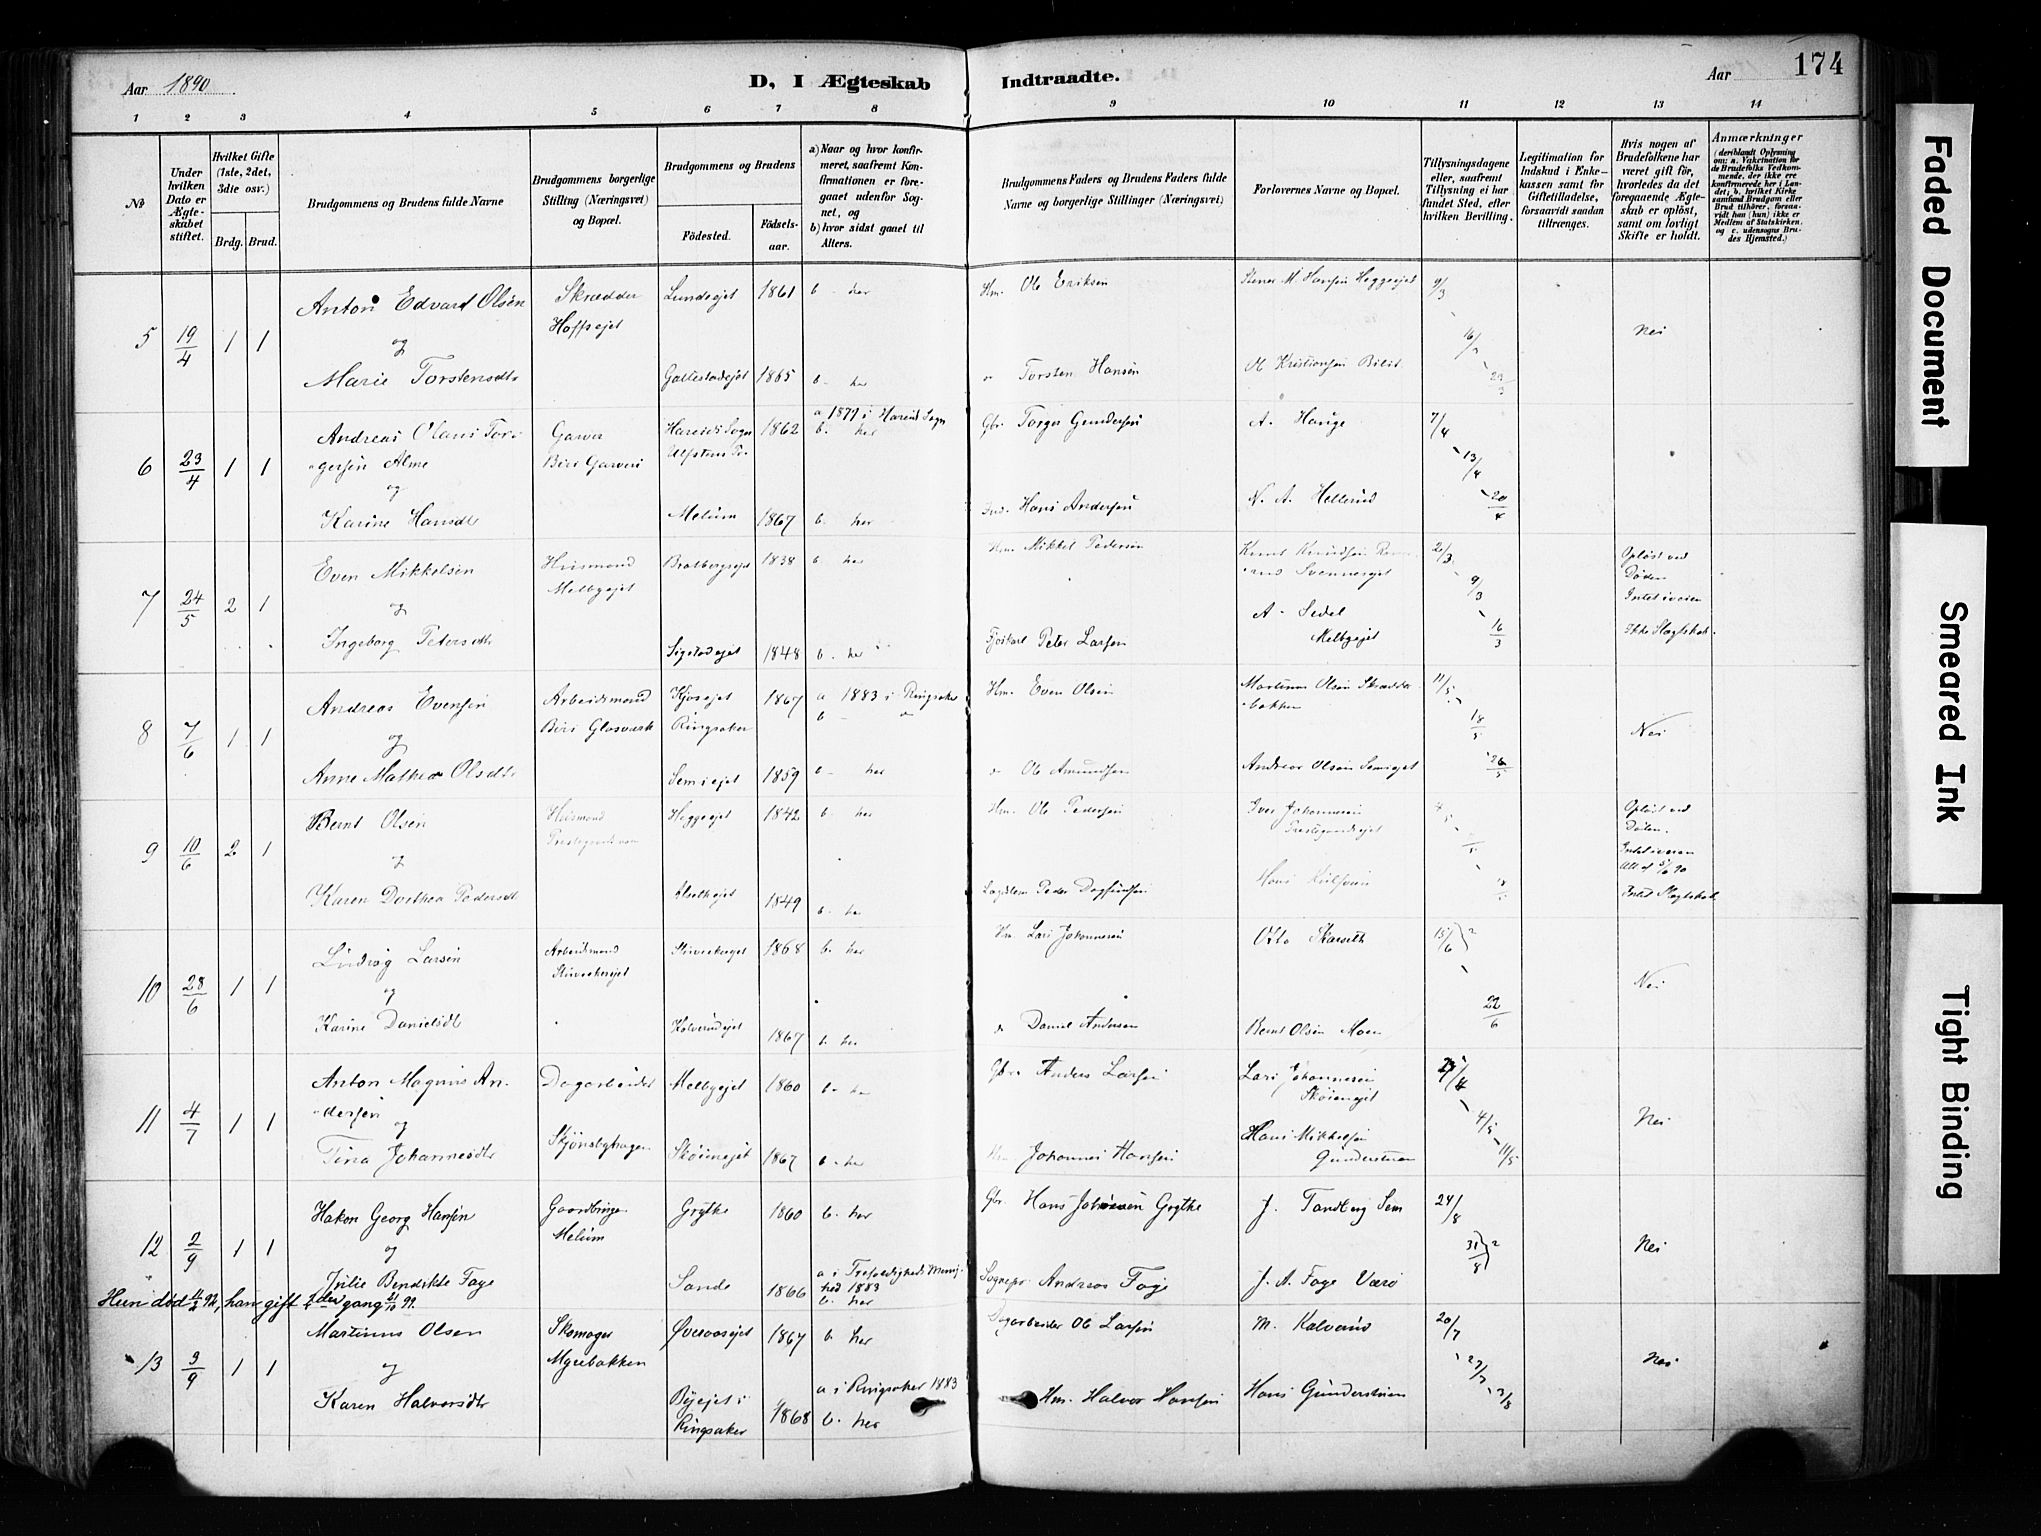 Aar 1890
D, I Ægteskab Indtraadte.
Aar
174
1 2 3 4 5 6 7 8 9 10 11 12 13 14
No
Under hvilken Dato er Ægteskabet stiftet.
Hvilket Gifte (1ste, 2det, 3die osv.)
Brdg. Brud.
Brudgommens og Brudens fulde Navne
Brudgommens borgerlige Stilling (Næringsvei) og Bopæl.
Brudgommens og Brudens
Fødested.
Fødselsaar.
a) Naar og hvor konfirmeret, saafremt Konfirmationen er foregaaet udenfor Sognet, og
b) hvor sidst gaaet til Alters.
Brudgommens Faders og Brudens Faders fulde Navne og borgerlige Stillinger (Næringsvei)
Forlovernes Navne og Bopæl.
Tillysningsdagene eller, saafremt Tillysning ei har fundet Sted, efter hvilken Bevilling.
Legitimation for Indskud i Enkekassen samt for Giftetilladelse, forsaavidt saadan tiltrænges.
Hvis nogen af Brudefolkene har været gift før, hvorledes da det foregaaende Ægteskab er opløst, samt om lovligt Skifte er holdt.
Anmærkninger
(deriblandt Oplysning om: a. Vakcination for de Brudefolks Vedkommende, der ikke ere konfirmerede her i Landet; b. hvilket Kirkesamfund Brudgom eller Brud tilhører, forsaavidt han (hun) ikke er Medlem af Statskirken, og c. udensogns Brudes Hjemsted.)
5 19/4 1 1
Anton Edvard Olsen Skrædder Lundsejet 1861 b. her Hm. Ole Eriksen 9/3
Hoffsejet
og 16/3 Nei
Marie Torstensdtr 1865 b. her Torsten Hansen Ole Kristiansen 23/3
6 23/4 1 1
Andreas Olaus Tor- Garver Hareids Sogn 1862 a. 1877 i Hareids Sogn Gbr. Torger Gundersen A. Hauge 7/4
gersen Alme Biri Garveri b. her
og 13/4
Karine Hansdtr Melum 1867 b. her Hans Andersen N. A. Hellerud 20/4
7 24/5 2 1
Even Mikkelsen Huusmand Bratbergsejet 1838 b. her Hm. Mikkel Pedersen 2/3 Opløst ved
Melbyejet Døden
og A. Sedel 9/3 Intet iveien
Ingeborg Petersdtr Sigstadejet 1848 b. her Peter Larsen Melbyejet 16/3 Ikke Slægtskab.
8 7/6 1 1
Andreas Evensen Arbeidsmand 1867 a 1883 i Ringsaker Hm. Even Olsen Martinus Olsen Skrædder- 11/5
Biri Glasværk Ringsaker b bakken
og 18/5 Nei
Anne Mathea Olsdtr Semsejet 1859 b. her Ole Amundsen Andreas Olsen Semsejet 26/5
9 10/6 2 1
Bernt Olsen Huusmand Heggeejet 1842 b. her Hm. Ole Pedersen Iver Johannesen Opløst ved
Døden.
Intet iveien
Karen Dorthea Pedersdtr 1849 b. her Peder Dagfinsen Hans Intet Slægtskab
10 28/6 1 1
Ludvig Larsen Arbeidsmand 1868 b. her Hm. Lars Johannesen Otto Skarseth 15/6
og Nei
Karine Danielsdtr Kalverudejet 1867 b. her Daniel Andersen Bernt Olsen Moen 22/6
11 4/7 1 1
Anton Magnus An- Dagarbeider Melbyejet 1860 b. her Gbr. Anders Larsen Lars Johannesen
dersen Skøienejet
og Skjønsbyhagen 4/5 Nei
Tina Johannesdtr Skøienejet 1867 b. her Johannes Hansen Hans Mikkelsen 11/5
Gunderstuen
12 2/9 1 1
Hakon Georg Hansen Gaardbruger Grythe 1860 b. her Gbr. Hans Johnsen Grythe J. Tandberg Sem 24/8
Melum
og 31/8 Nei
Julie Bendikte Faye Sande 1866 a i Trefoldigheds Menig- Sognepr. Andreas Faye J. A. Faye
hed 1883
b. her
Hun død 92, han gift 2den gang 99.
13 3/9 1 1
Martinus Olsen Skomager Øveraasejet 1867 b. her Dagarbeider Ole Larsen M. Kalverud 20/7
og Myrebakken 27/7 Nei
Karen Halvorsdtr Byejet i 1868 a i Ringsaker 1883 Hm. Halvor Hansen Hans Gunderstuen 3/8
Ringsaker b. her
Faded Document
Smeared Ink
Tight Binding